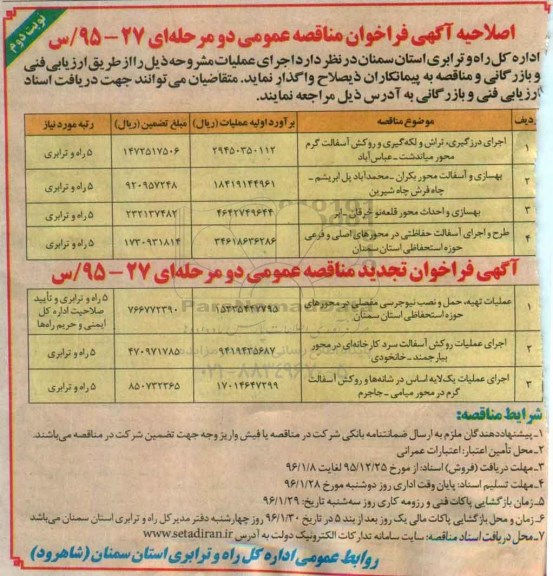 نوبت دوم
اصلاحیه آگهی فراخوان مناقصه عمومی دو مرحله‌ای ۲۷ - ۹۵/س
اداره کل راه و ترابری استان سمنان در نظر دارد اجرای عملیات مشروحه ذیل را از طریق ارزیابی فنی
و بازرگانی و مناقصه به پیمانکاران ذیصلاح واگذار نماید. متقاضیان می توانند جهت دریافت اسناد
ارزیابی فنی و بازرگانی به آدرس ذیل مراجعه نمایند.
ردیف موضوع مناقصه برآورد اولیه عملیات (ریال) مبلغ تضمین (ریال) رتبه مورد نیاز
۱ اجرای درزگیری، تراش و لکه‌گیری و روکش آسفالت گرم محور میاندشت ـ عباس‌آباد ۲۹۴۵۰۳۵۰۱۱۲ ۱۴۷۲۵۱۷۵۰۶ ۵ راه و ترابری
۲ بهسازی و آسفالت محور بکران ـ محمدآباد پل ابریشم ـ چاه فرش چاه شیرین ۱۸۴۱۹۱۴۴۹۶۱ ۹۲۰۹۵۷۲۴۸ ۵ راه و ترابری
۳ بهسازی و احداث محور قلعه‌نو خرقان ـ ابر ۴۶۴۲۷۴۹۶۴۴ ۲۳۲۱۳۷۴۸۲ ۵ راه و ترابری
۴ طرح و اجرای آسفالت حفاظتی در محورهای اصلی و فرعی حوزه استحفاظی استان سمنان ۳۴۶۱۸۶۳۶۲۸۶ ۱۷۳۰۹۳۱۸۱۴ ۵ راه و ترابری
آگهی فراخوان تجدید مناقصه عمومی دو مرحله‌ای ۲۷ - ۹۵/س
۱ عملیات تهیه، حمل و نصب نیوجرسی مفصلی در محورهای حوزه استحفاظی استان سمنان ۱۵۳۳۵۴۴۷۷۹۵ ۷۶۶۷۷۲۳۹۰ ۵ راه و ترابری و تأیید صلاحیت اداره کل ایمنی و حریم راه‌ها
۲ اجرای عملیات روکش آسفالت سرد کارخانه‌ای در محور بیارجمند ـ خانخودی ۹۴۱۹۴۳۵۶۸۷ ۴۷۰۹۷۱۷۸۵ ۵ راه و ترابری
۳ اجرای عملیات یک‌لایه اساس در شانه‌ها و روکش آسفالت گرم در محور میامی ـ جاجرم ۱۷۰۱۴۶۴۷۲۹۹ ۸۵۰۷۳۲۳۶۵ ۵ راه و ترابری
شرایط مناقصه:
۱ـ پیشنهاددهندگان ملزم به ارسال ضمانتنامه بانکی شرکت در مناقصه یا فیش واریز وجه جهت تضمین شرکت در مناقصه می‌باشند.
۲ـ محل تأمین اعتبار: اعتبارات عمرانی
۳ـ مهلت دریافت (فروش) اسناد: از مورخ ۹۵/۱۲/۲۵ لغایت ۹۶/۱/۸
۴ـ مهلت تسلیم اسناد: پایان وقت اداری روز دوشنبه مورخ ۹۶/۱/۲۸
۵ـ زمان بازگشایی پاکات فنی و رزومه کاری روز سه‌شنبه تاریخ: ۹۶/۱/۲۹
۶ـ زمان و محل بازگشایی پاکات مالی یک روز بعد از بند ۵ در تاریخ ۹۶/۱/۳۰ روز چهارشنبه دفتر مدیرکل راه و ترابری استان سمنان می‌باشد
۷ـ محل دریافت اسناد مناقصه: سایت سامانه تدارکات الکترونیک دولت به آدرس www.setadiran.ir
روابط عمومی اداره کل راه و ترابری استان سمنان (شاهرود)